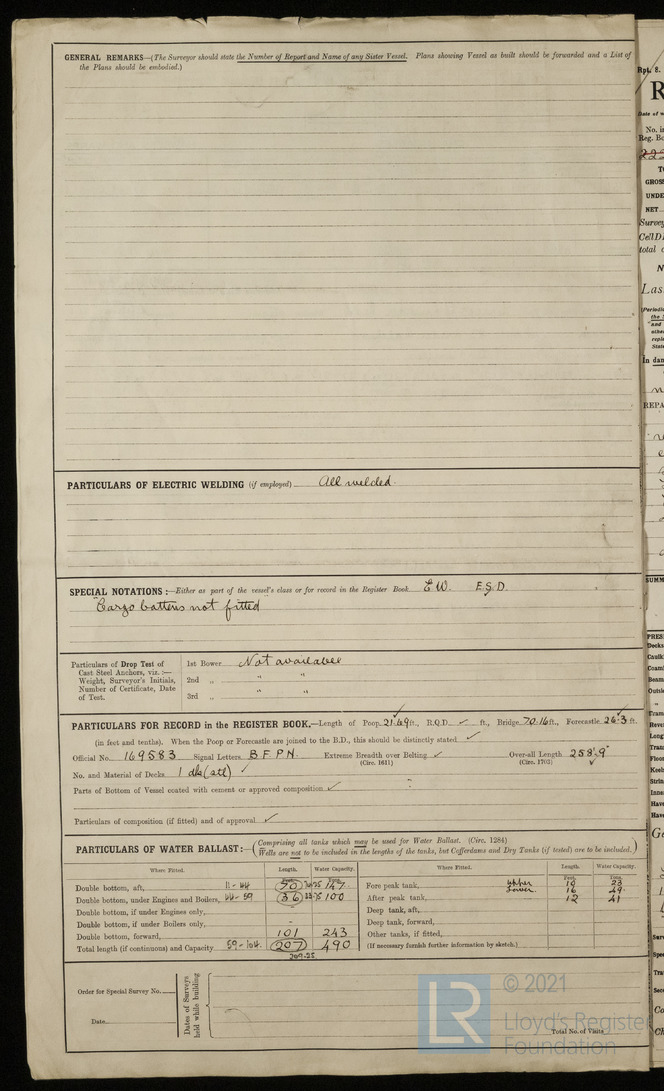 GENERAL REMARKS—(The Surveyor should state the Number of Report and Name of any Sister Vessel. Plans showing Vessel as built should be forwarded and a List of
the Plans should be embodied.)
PARTICULARS OF ELECTRIC WELDING (if employed) All welded.
SPECIAL NOTATIONS :—Either as part of the vessel's class or for record in the Register Book E.W. E.S.D.
Cargo battens not fitted
Particulars of Drop Test of
Cast Steel Anchors, viz. :—
Weight, Surveyor's Initials,
Number of Certificate, Date
of Test.
1st Bower Not available
2nd ,, " "
3rd ,, " "
PARTICULARS FOR RECORD in the REGISTER BOOK.—Length of Poop 21.69 ft., R.Q.D. ✓ ft., Bridge 70.16 ft., Forecastle 26.3 ft.
(in feet and tenths). When the Poop or Forecastle are joined to the B.D., this should be distinctly stated ✓
Official No. 169583 Signal Letters B.F.P.N. Extreme Breadth over Belting ✓ Over-all Length 258'.9"
(Circ. 1611) (Circ. 1703) ✓
No. and Material of Decks 1 dk (stl) ✓
Parts of Bottom of Vessel coated with cement or approved composition ✓
Particulars of composition (if fitted) and of approval ✓
PARTICULARS OF WATER BALLAST :—(Comprising all tanks which may be used for Water Ballast. (Circ. 1284)
Wells are not to be included in the lengths of the tanks, but Cofferdams and Dry Tanks (if tested) are to be included.)
Where Fitted. Length. Water Capacity. Where Fitted. Length. Water Capacity.
Feet. Tons. Feet. Tons.
Double bottom, aft, 11-44 70 147
Double bottom, under Engines and Boilers, 44-59 36 100
Double bottom, if under Engines only,
Double bottom, if under Boilers only,
Double bottom, forward, 101 243
Total length (if continuous) and Capacity 59-104 207 490
209.25
Fore peak tank, upper 19 23
lower 16 49
After peak tank, 12 41
Deep tank, aft,
Deep tank, forward,
Other tanks, if fitted,
(If necessary furnish further information by sketch.)
Order for Special Survey No.
Date
Dates of Surveys
held while building
Total No. of Visits
LR
© 2021
Lloyd's Register
Foundation
Rpt. 8.